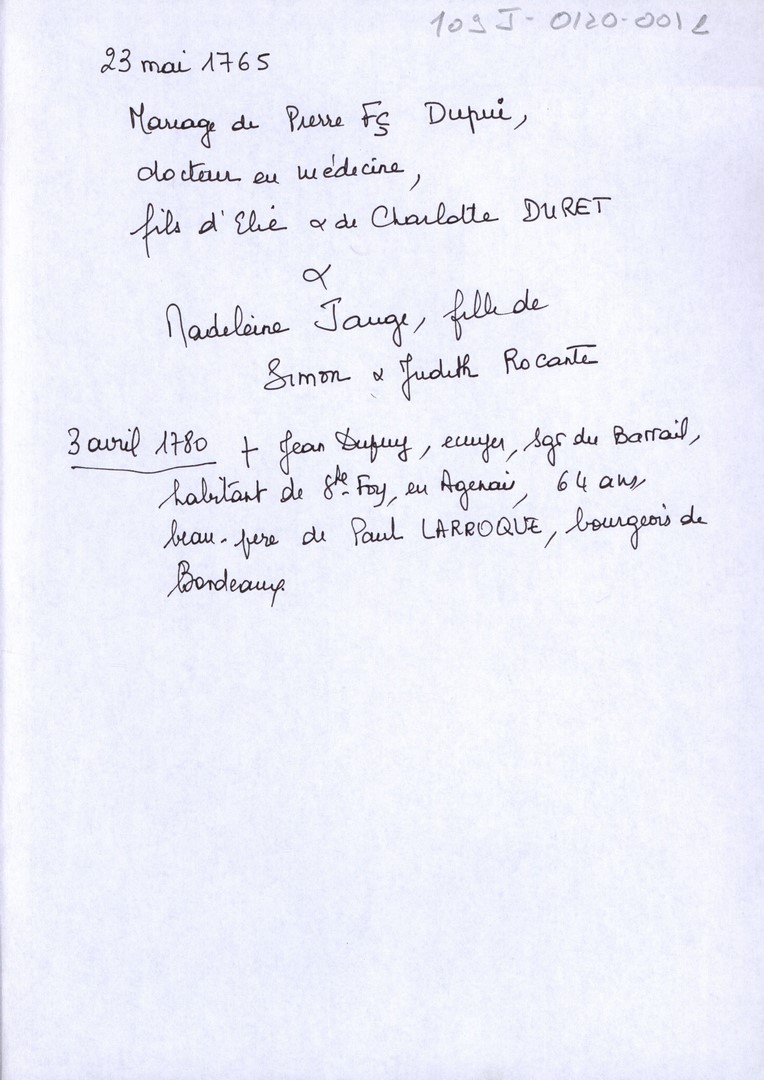 109 J - 0120-0012
23 mai 1765
Mariage de Pierre Fçs Dupui,
docteur en médecine,
fils d'Elie & de Charlotte DURET
&
Madeleine Jauge, fille de
Simon & Judith Rocante
3 avril 1780 + Jean Dupuy, ecuyer, sgr du Barrail,
habitant de Ste-Foy, en Agenais, 64 ans,
beau-pere de Paul LARROQUE, bourgeois de
Bordeaux